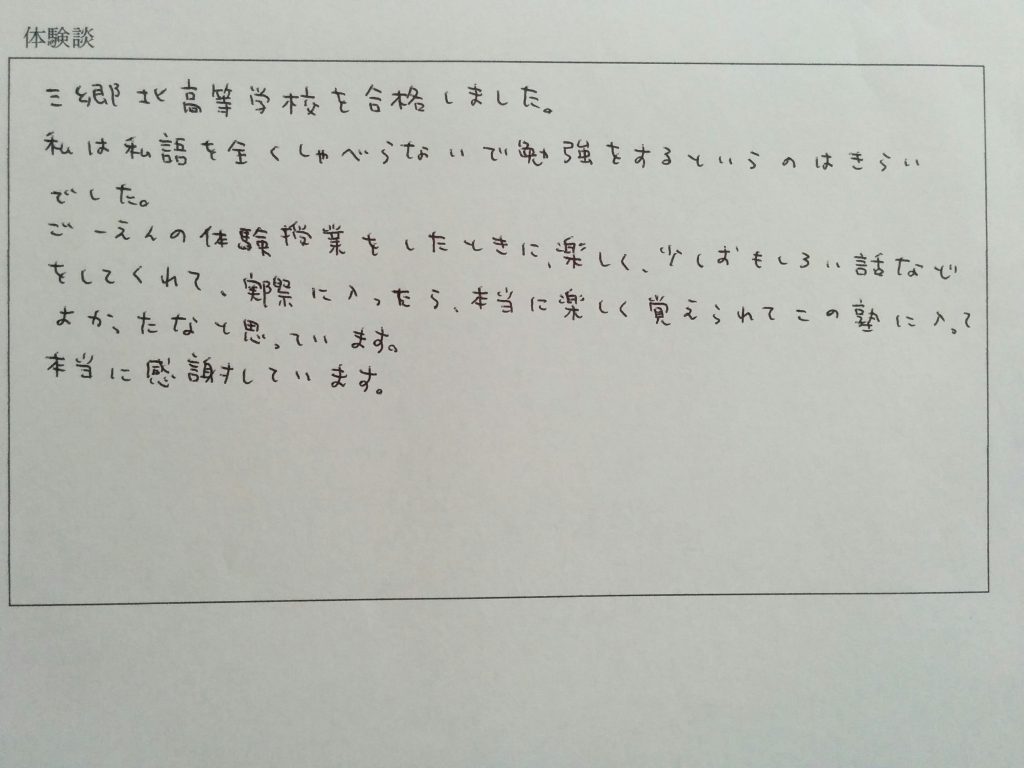 体験談
三郷北高等学校を合格しました。
私は私語を全くしゃべらないで勉強をするというのはきらい
でした。
ごーえんの体験授業をしたときに、楽しく、少しおもしろい話など
をしてくれて、実際に入ったら、本当に楽しく覚えられてこの塾に入って
よかったなと思っています。
本当に感謝しています。